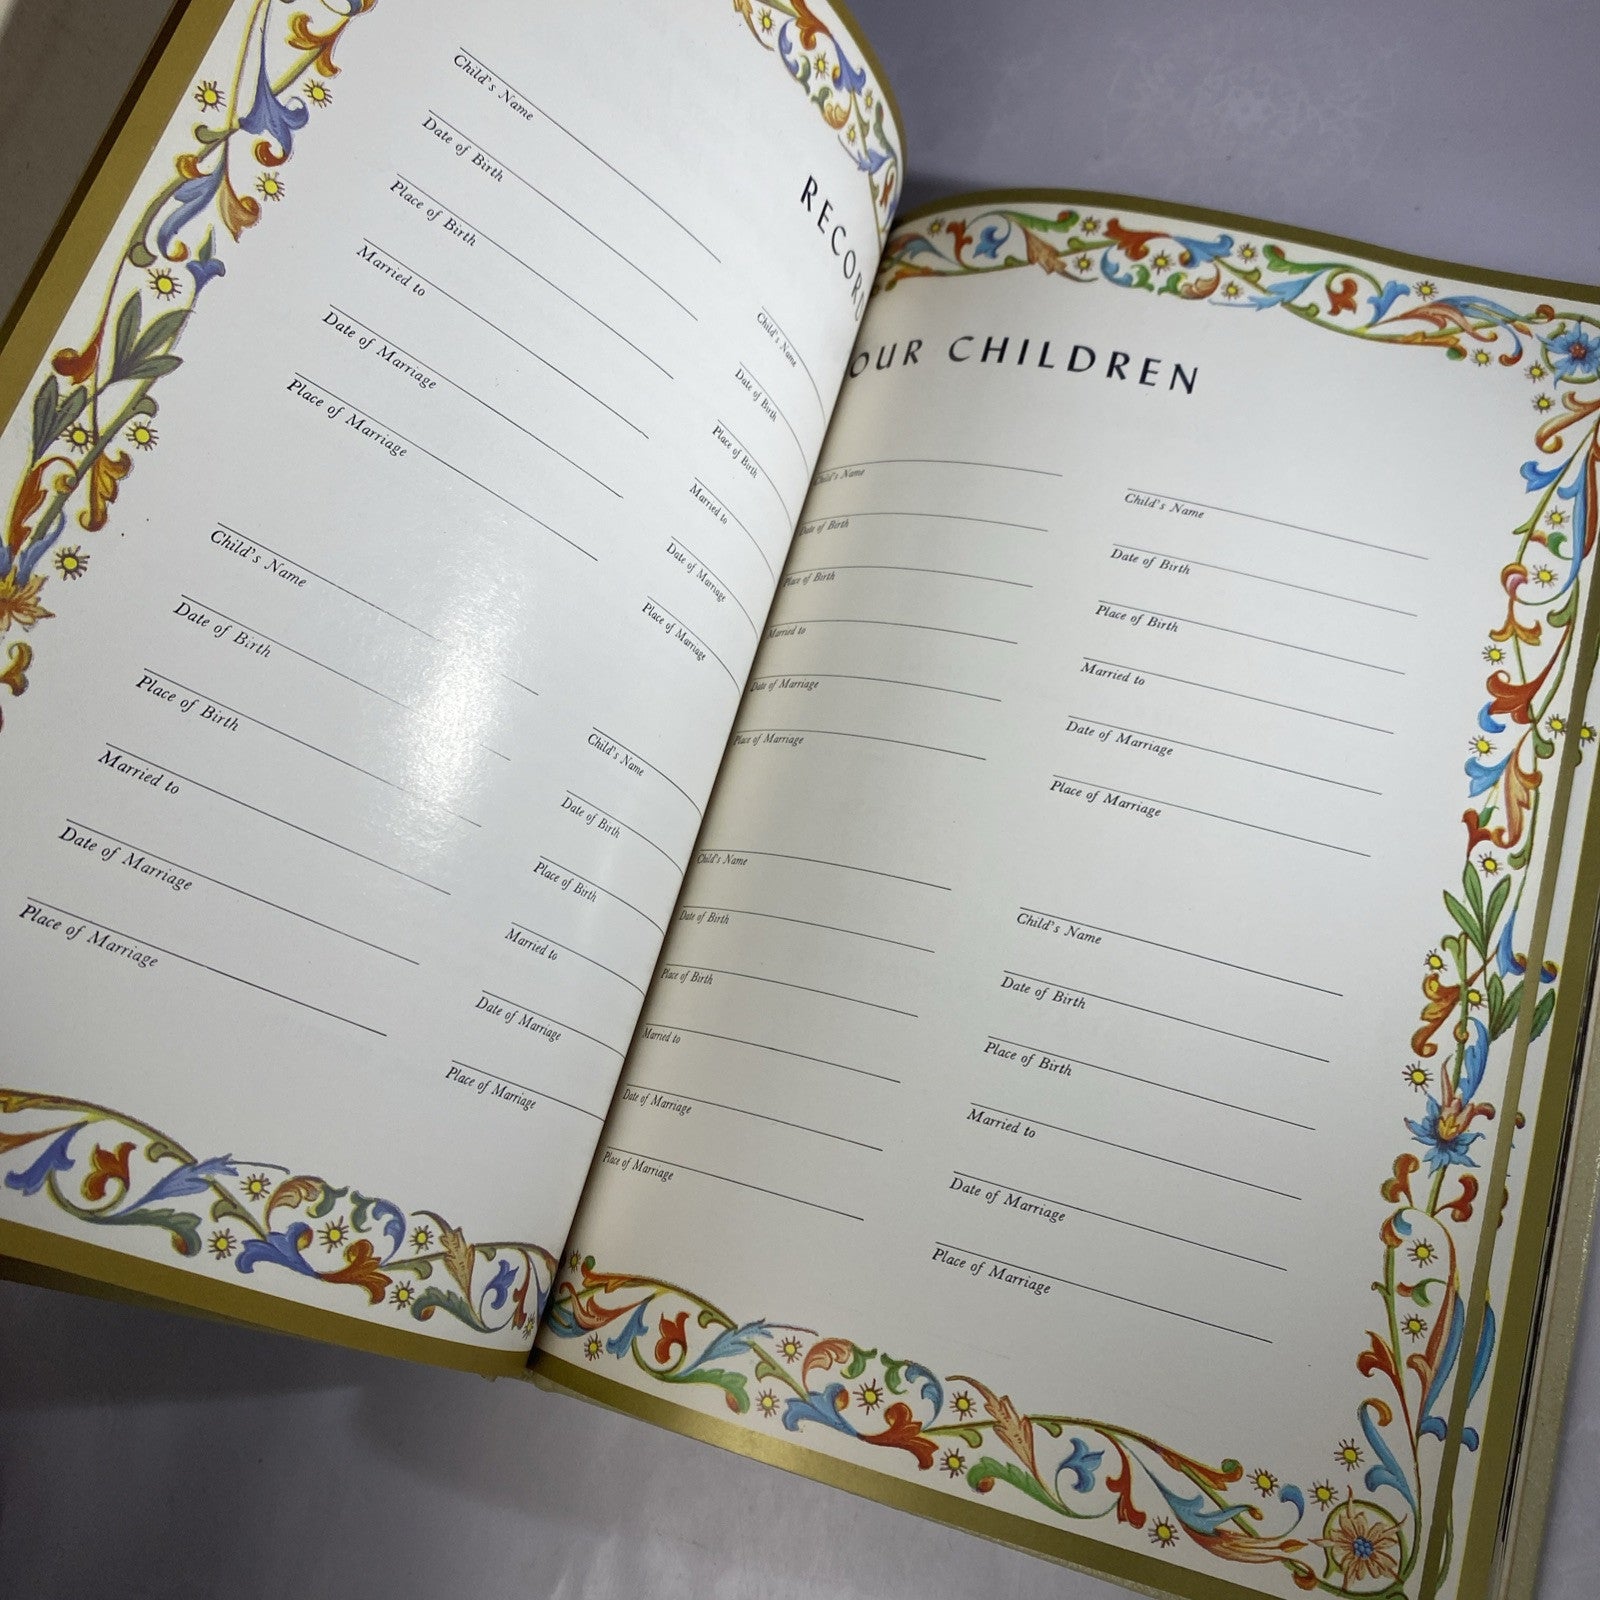 RECORD
Child's Name
Date of Birth
Place of Birth
Married to
Date of Marriage
Place of Marriage
Child's Name
Date of Birth
Place of Birth
Married to
Date of Marriage
Place of Marriage
Child's Name
Date of Birth
Place of Birth
Married to
Date of Marriage
Place of Marriage
Child's Name
Date of Birth
Place of Birth
Married to
Date of Marriage
Place of Marriage
OUR CHILDREN
Child's Name
Date of Birth
Place of Birth
Married to
Date of Marriage
Place of Marriage
Child's Name
Date of Birth
Place of Birth
Married to
Date of Marriage
Place of Marriage
Child's Name
Date of Birth
Place of Birth
Married to
Date of Marriage
Place of Marriage
Child's Name
Date of Birth
Place of Birth
Married to
Date of Marriage
Place of Marriage